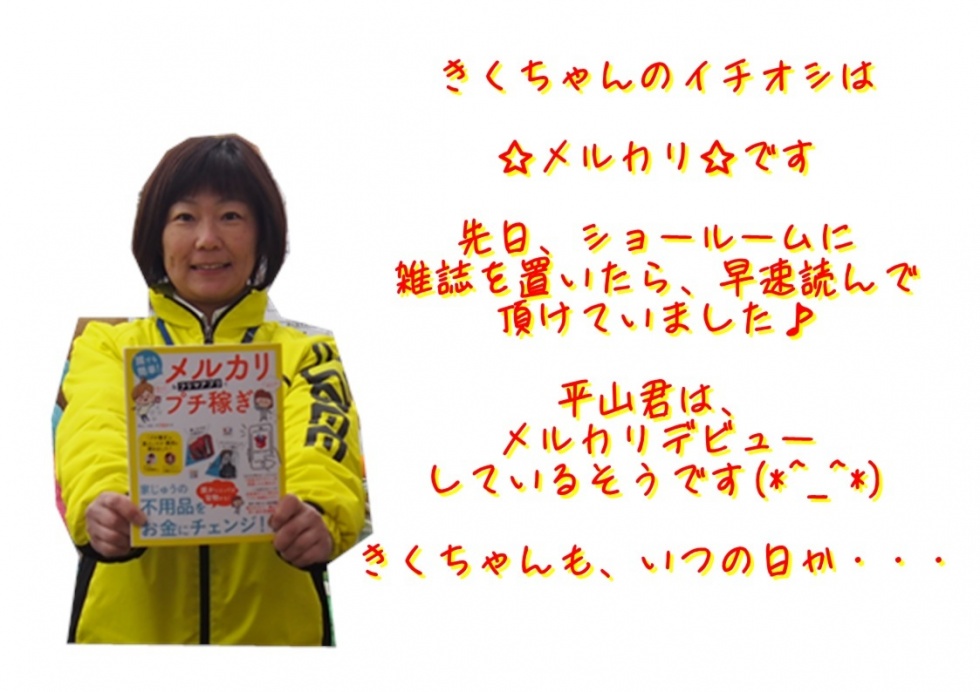 きくちゃんのイチオシは
☆メルカリ☆です
先日、ショールームに
雑誌を置いたら、早速読んで
頂けていました♪
平山君は、
メルカリデビュー
しているそうです(*^_^*)
きくちゃんも、いつの日か・・・
誰でも
簡単!
メルカリ
フリマアプリ
プチ稼ぎ
家じゅうの
不用品を
お金にチェンジ!